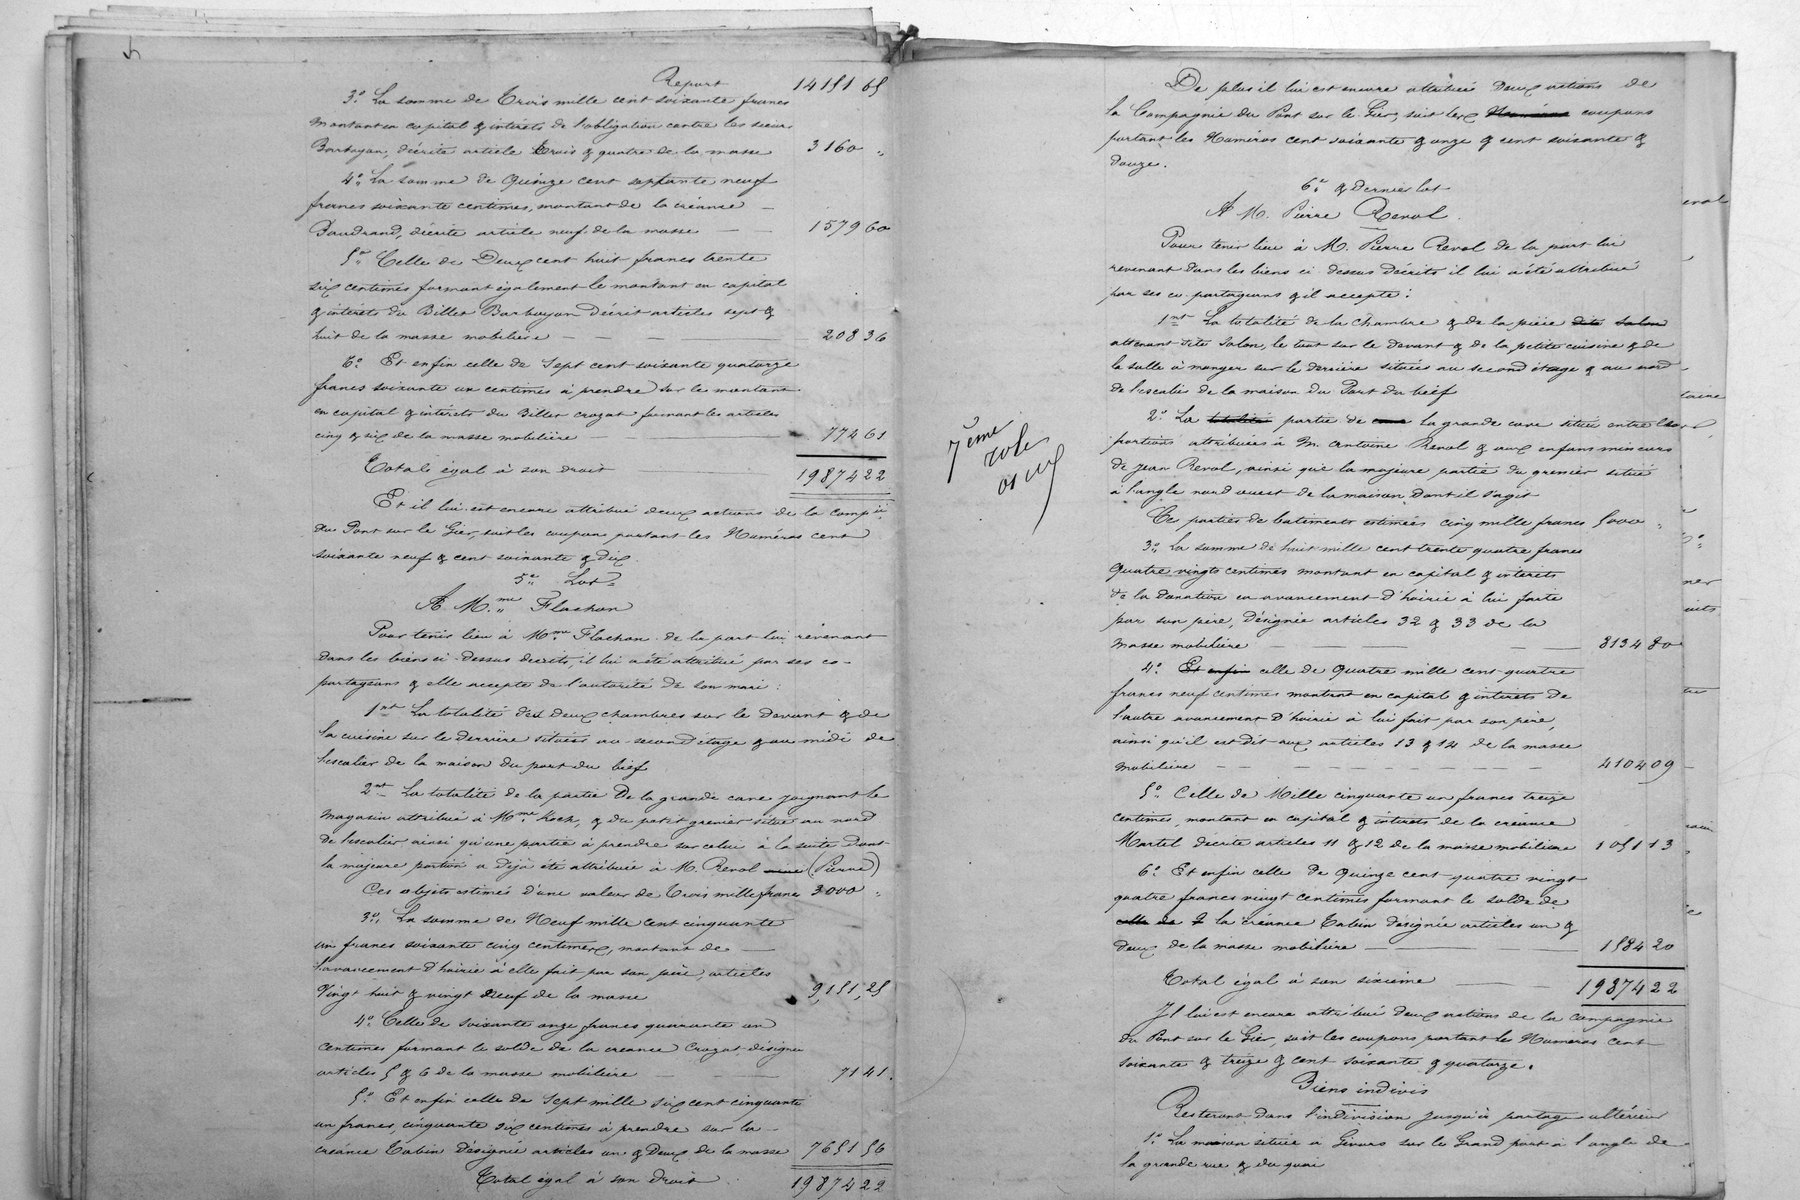 Report 14151 65
3.° La somme de Trois mille cent soixante francs
montant en capital & intérêts de l'obligation contre les sieurs
Barbojon, décrite article trois & quatre de la masse 3160 "
4.° La somme de Quinze cent septante neuf
francs soixante centimes, montant de la créance —
Baudrand, décrite article neuf de la masse — — 1579 60
5.° Celle de Deux cent huit francs trente
six centimes formant également le montant en capital
& intérêts du Billet Barbojon décrit articles sept &
huit de la masse mobilière — — — 208 36
6.° Et enfin celle de Sept cent soixante quatorze
francs soixante un centimes à prendre sur le montant
en capital & intérêts du Billet Crozat formant les articles
cinq & six de la masse mobilière — — 774 61
Total égal à son droit — 19874 22
Et il lui est encore attribué deux actions de la Comp.ie
du Pont sur le Gier, soit les coupons portant les Numéros cent
soixante neuf & cent soixante & dix.
5.e Lot
A M.me Flachon
Pour tenir lieu à M.me Flachon de la part lui revenant
dans les biens ci-dessus décrits, il lui a été attribué par ses co-
partageans & elle accepte de l'autorité de son mari :
1.nt La totalité des deux chambres sur le devant & de
la cuisine sur le derrière situées au second étage & au midi de
l'escalier de la maison du port du bief
2.nt La totalité de la partie De la grande cave joignant le
magasin attribué à M.me Koch, & du petit grenier situé au nord
de l'escalier ainsi qu'une partie à prendre sur celui à la suite dont
la majeure portion a déjà été attribuée à M. Revol (Pierre)
Ces objets estimés d'une valeur de Trois mille francs 3000 "
3.° La somme de Neuf mille cent cinquante
un francs soixante cinq centimes, montant de —
l'avancement d'hoirie à elle fait par son père, articles
Vingt huit & vingt neuf de la masse 9,151,25
4.° Celle de soixante onze francs quarante un
centimes formant le solde de la créance Crozat désignée
articles 5 & 6 de la masse mobilière — — 71 41.
5.° Et enfin celle de Sept mille six cent cinquante
un francs, cinquante six centimes à prendre sur la —
créance Tabin Désignée articles un & deux de la masse 7651 56
Total égal à son droit 19874 22
7ème
rôle
De plus il lui est encore attribué Deux actions de
la Compagnie du Pont sur le Gier, soit les Numéros coupons
portant les Numéros cent soixante & onze & cent soixante &
douze.
6.e & dernier lot
A M. Pierre Revol.
Pour tenir lieu à M. Pierre Revol de la part lui
revenant dans les biens ci-dessus décrits il lui a été attribué
par ses co-partageans & il accepte :
1.nt La totalité de la chambre & de la pièce dite Salon
attenant dite Salon, le tout sur le devant & de la petite cuisine & de
la salle à manger sur le derrière situées au second étage & au nord
de l'escalier de la maison du Port du bief
2.° La totalité partie de la grande cave située entre les
portions attribuées à M. Antoine Revol & aux enfans mineurs
de Jean Revol, ainsi que la majeure partie du grenier situé
à l'angle nord ouest de la maison dont il s'agit
Ces parties de batiments estimées cinq mille francs 5000 "
3.° La somme de huit mille cent trente quatre francs
quatre vingts centimes montant en capital & intérêts
de la donation en avancement d'hoirie à lui faite
par son père, désignée articles 32 & 33 de la
masse mobilière — — — — — 8134 80
4.° Et enfin celle de Quatre mille cent quatre
francs neuf centimes montant en capital & intérêts de
l'autre avancement d'hoirie à lui fait par son père,
ainsi qu'il est dit aux articles 13 & 14 de la masse
mobilière — — — — — 4104 09
5.° Celle de Mille cinquante un francs treize
centimes, montant en capital & intérêts de la créance
Martel décrite articles 11 & 12 de la masse mobilière 1051 13
6.° Et enfin celle de Quinze cent quatre vingt
quatre francs vingt centimes formant le solde de
celle de la créance Tabin désignée articles un &
deux de la masse mobilière — — 1584 20
Total égal à son sixième — — 19874 22
Il lui est encore attribué deux actions de la compagnie
du Pont sur le Gier, soit les coupons portant les Numéros cent
soixante & treize & cent soixante & quatorze.
Biens indivis
Resteront dans l'indivision jusqu'à partage ultérieur
1.° La maison située à Givors sur le Grand port à l'angle de
la grande rue & du quai